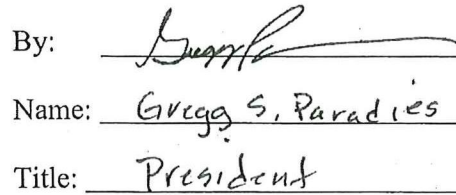 By:
Name: Gregg S. Paradies
Title: President